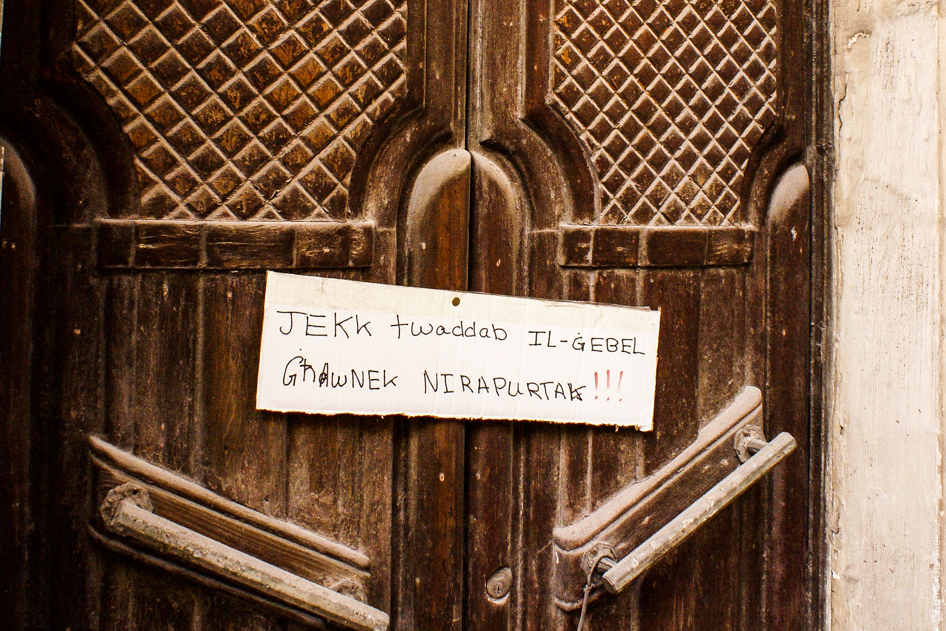 JEKK twaddab IL-ĠEBEL
GĦAWNEK NIRAPURTAK!!!